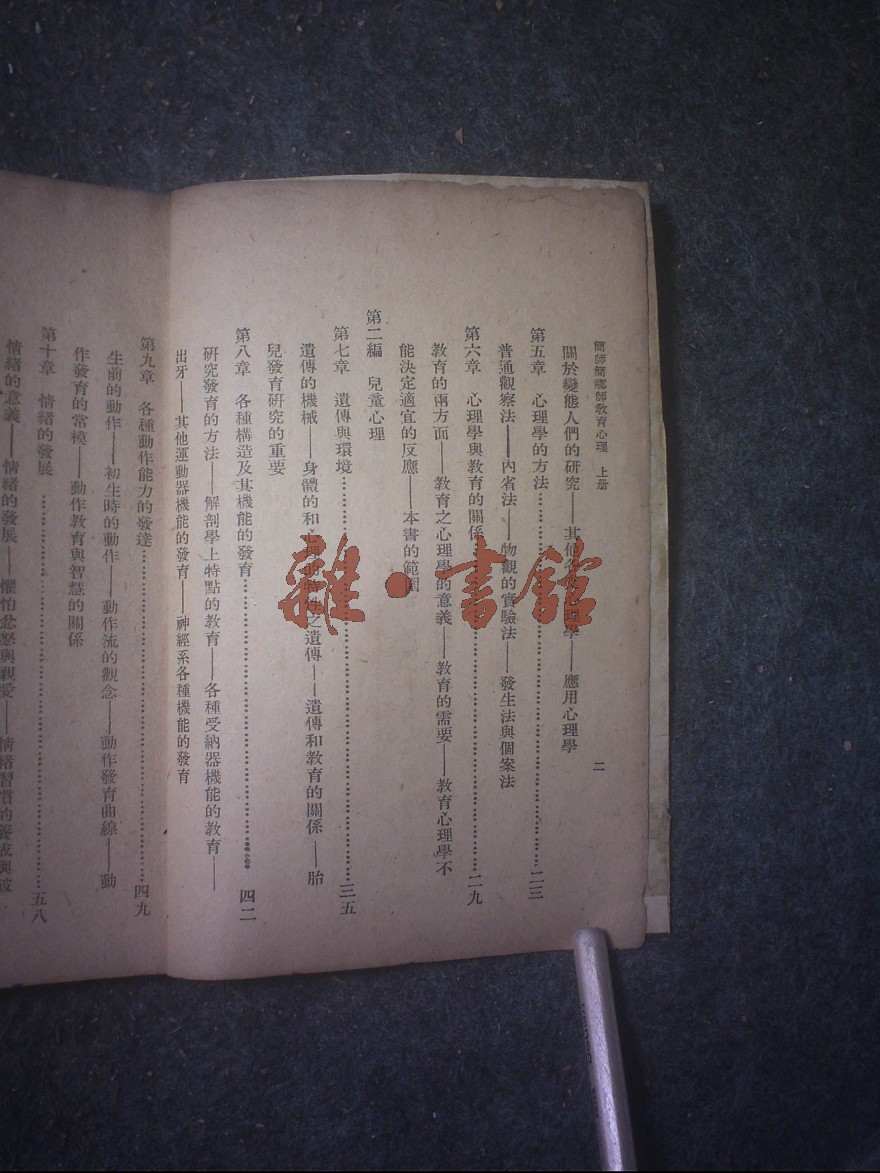 簡師簡鄉師教育心理 上册 二
關於變態人們的研究——其他各種心理學——應用心理學
第五章 心理學的方法…………二三
普通觀察法——內省法——物觀的實驗法——發生法與個案法
第六章 心理學與教育的關係…………二九
教育的兩方面——教育之心理學的意義——教育的需要——教育心理學不
能決定適宜的反應——本書的範圍
第二編 兒童心理
第七章 遺傳與環境…………三五
遺傳的機械——身體的和心理的特性之遺傳——遺傳和教育的關係——胎
兒發育研究的重要
第八章 各種構造及其機能的發育…………四二
研究發育的方法——解剖學上特點的教育——各種受納器機能的教育——
出牙——其他運動器機能的發育——神經系各種機能的發育
第九章 各種動作能力的發達…………四九
生前的動作——初生時的動作——動作流的觀念——動作發育曲線——動
作發育的常模——動作教育與智慧的關係
第十章 情緒的發展…………五八
情緒的意義——情緒的發展——懼怕忿怒與親愛——情緒習慣的養成與破
雜·書館